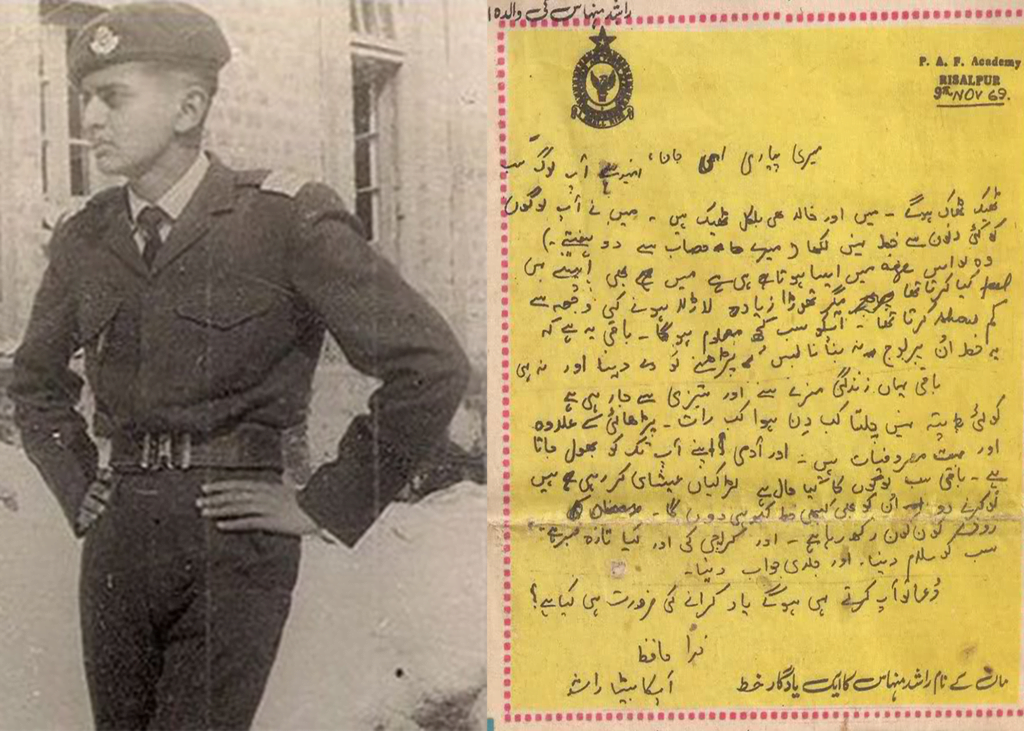 راشد منہاس کی والدہ
P. A. F. Academy
RISALPUR
9th NOV 69.
میری پیاری امی جان، امید ہے آپ لوگ سب
ٹھیک ٹھاک ہوگے - میں اور خالد بھی بلکل ٹھیک ہیں - میں نے آپ لوگوں
کو کئی دنوں سے خط نہیں لکھا (میرے حساب سے دو ہفتے -)
وہ تو اس میں ایسا ہوتا ہی ہے میں بھی اپنے میں
feel کیا کرتا تھا مگر تھوڑا زیادہ لاڈلا ہونے کی وجہ سے
کم show کرتا تھا - آپکو سب کچھ معلوم ہوگا - باقی یہ ہے کہ
یہ خط ان نہ بتانا بس پڑھنے کو دے دینا اور نہ ہی
باقی یہاں زندگی مزے سے اور تیزی سے جا رہی ہے
کوئی پتہ نہیں چلتا کب دن ہوا کب رات - پڑھائی کے علاوہ
اور بہت مصروفیات ہیں - اور آدمی اپنے آپ تک کو بھول جاتا
ہے - باقی سب لوگوں کا کیا حال ہے لڑکیاں عیشای کر رہی ہیں
تو کرنے دو ان کو بھی کبھی خط لکھ ہی دوں گا - رمضان
روزے کون کون رکھ رہا ہے - اور کراچی کی اور کیا تازہ خبر ہے؟
سب کو سلام دینا - اور جلدی جواب دینا -
دعا تو آپ کرتے ہی ہوگے یاد کرانے کی ضرورت ہی کیا ہے؟
خدا حافظ
آپکا بیٹا راشد
ماں کے نام راشد منہاس کا ایک یادگار خط